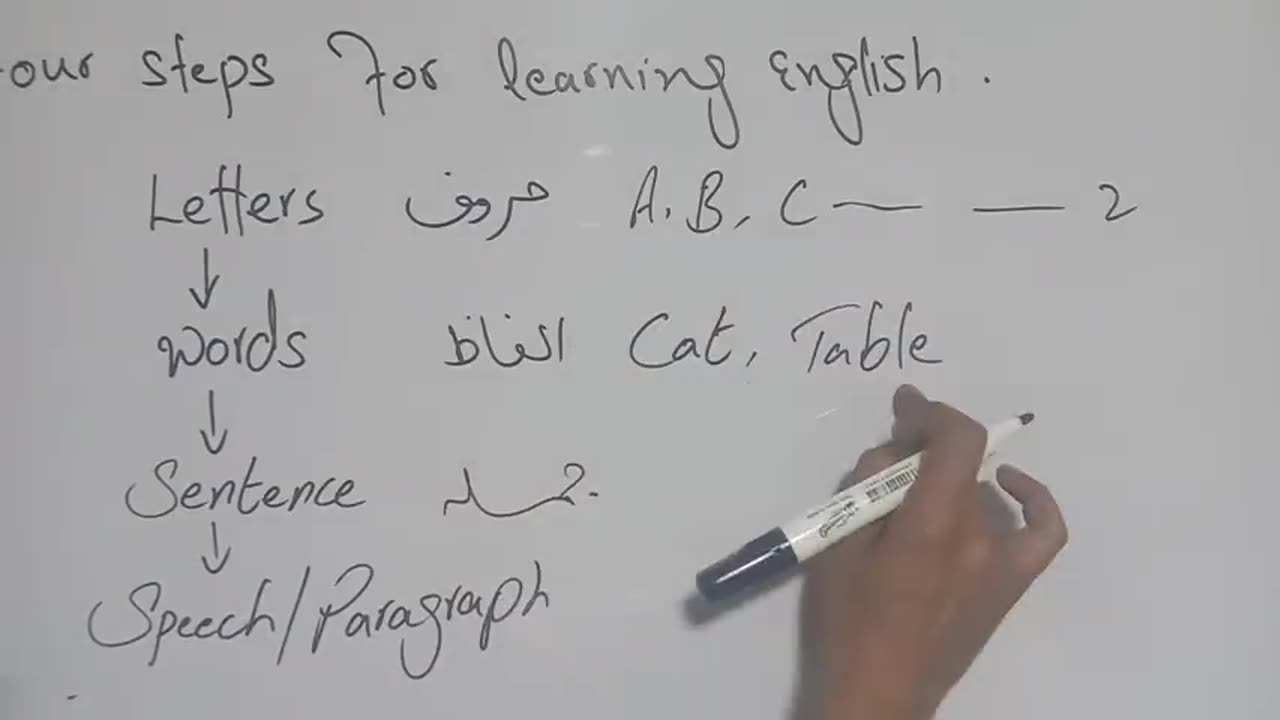 our steps For learning English.
Letters حروف A, B, C — — Z
↓
Words الفاظ Cat, Table
↓
Sentence جملہ
↓
Speech/Paragraph